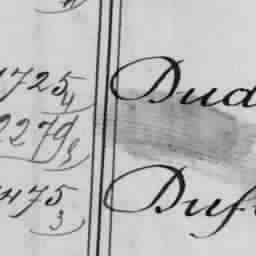 1725 4 Dud
2279 3
475 3 Duf